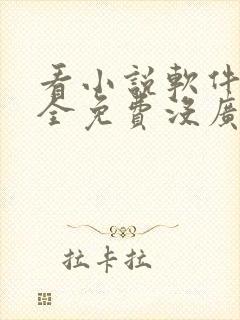 看小說軟件
全免費沒廣
拉卡拉